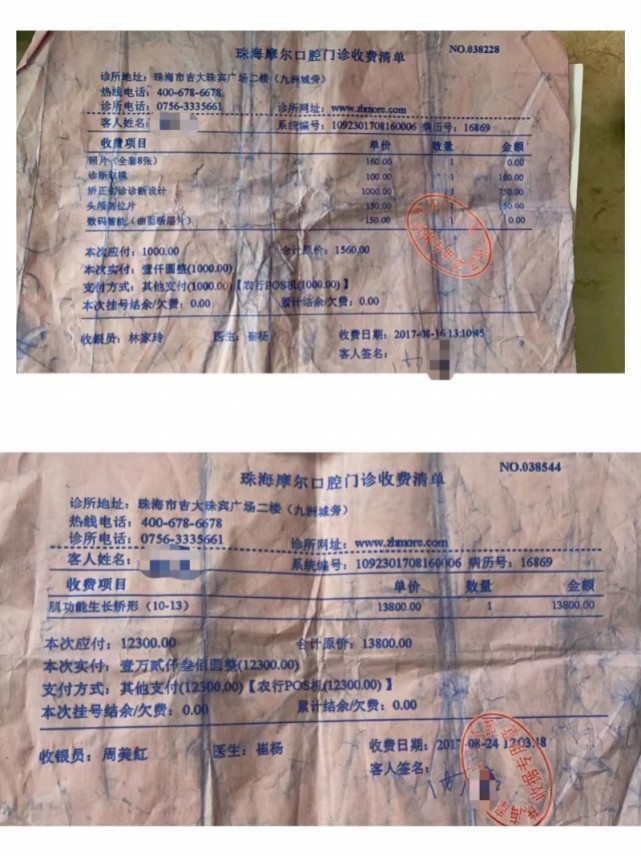 珠海摩尔口腔门诊收费清单 NO.038228
诊所地址：珠海市吉大珠宾广场二楼（九洲城旁）
热线电话：400-678-6678
诊所电话：0756-3335661 诊所网址：www.zhmore.com
客人姓名： 系统编号：1092301708160006 病历号：16869
收费项目 单价 数量 金额
照片（全套8张） 160.00 1 0.00
诊断取模 100.00 1 100.00
矫正初诊诊断设计 1000.00 1 750.00
头颅侧位片 150.00 1 150.00
数码智能（曲面断层片） 150.00 1 0.00
本次应付：1000.00 合计原价：1560.00
本次实付：壹仟圆整(1000.00)
支付方式：其他支付(1000.00)【农行POS机(1000.00)】
本次挂号结余/欠费：0.00 累计结余/欠费：0.00
收银员：林家玲 医生：崔杨 收费日期：2017-08-16 13:10:45
客人签名：
珠海摩尔口腔门诊收费清单 NO.038544
诊所地址：珠海市吉大珠宾广场二楼（九洲城旁）
热线电话：400-678-6678
诊所电话：0756-3335661 诊所网址：www.zhmore.com
客人姓名： 系统编号：1092301708160006 病历号：16869
收费项目 单价 数量 金额
肌功能生长矫形（10-13） 13800.00 1 13800.00
本次应付：12300.00 合计原价：13800.00
本次实付：壹万贰仟叁佰圆整(12300.00)
支付方式：其他支付(12300.00)【农行POS机(12300.00)】
本次挂号结余/欠费：0.00 累计结余/欠费：0.00
收银员：周美红 医生：崔杨 收费日期：2017-08-24
客人签名：